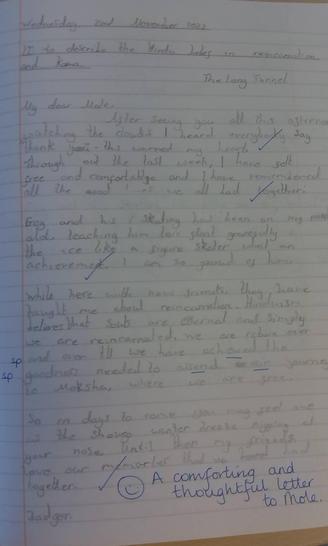 Wednesday 2nd November 2022
LI to describe the Hindu belief in reincarnation
and Karma.
The Long Tunnel
My dear Mole,
After seeing you all this afternoon
watching the clouds I heard everybody say
thank you - this warmed my heart
Through out the last week, I have felt
free and comfortable and I have remembered
all the good we all had together.
Frog and his skating has been on my
and teaching him to glide gracefully
the ice like a figure skater what an
achievement I am so proud of him.
While here with new friends they have
taught me about reincarnation. Hinduism
believes that souls are eternal and simply
we are reincarnated, we are reborn over
sp and over till we have achieved the
sp goodness needed to ascend journey
to Moksha, where we are free.
So in days to come you may feel me
as the winter breeze nipping at
your nose until then my friends
love our memories that we have had
together.
Badger.
A comforting and
thoughtful letter
to Mole.